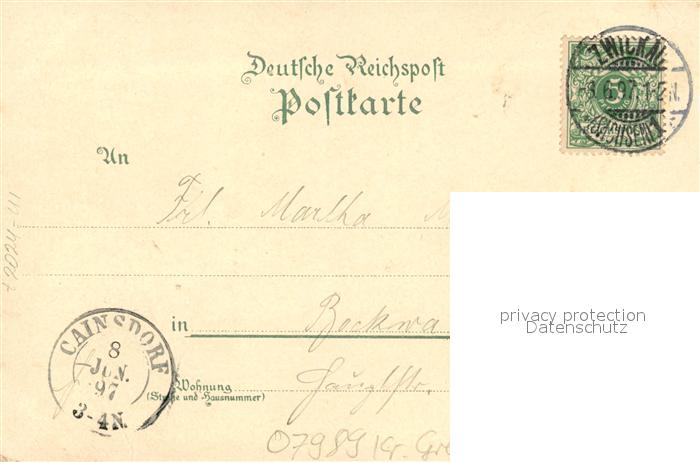 Deutsche Reichspost
Postkarte
ZWICKAU
5
6.97.1-2N.
(SACHSEN)
An
Frl. Martha M
privacy protection
Datenschutz
in Bockwa
CAINSDORF
8
JUN.
97
3-4N.
Wohnung
(Straße und Hausnummer)
Hauptstr.
07989 Kr. Gre